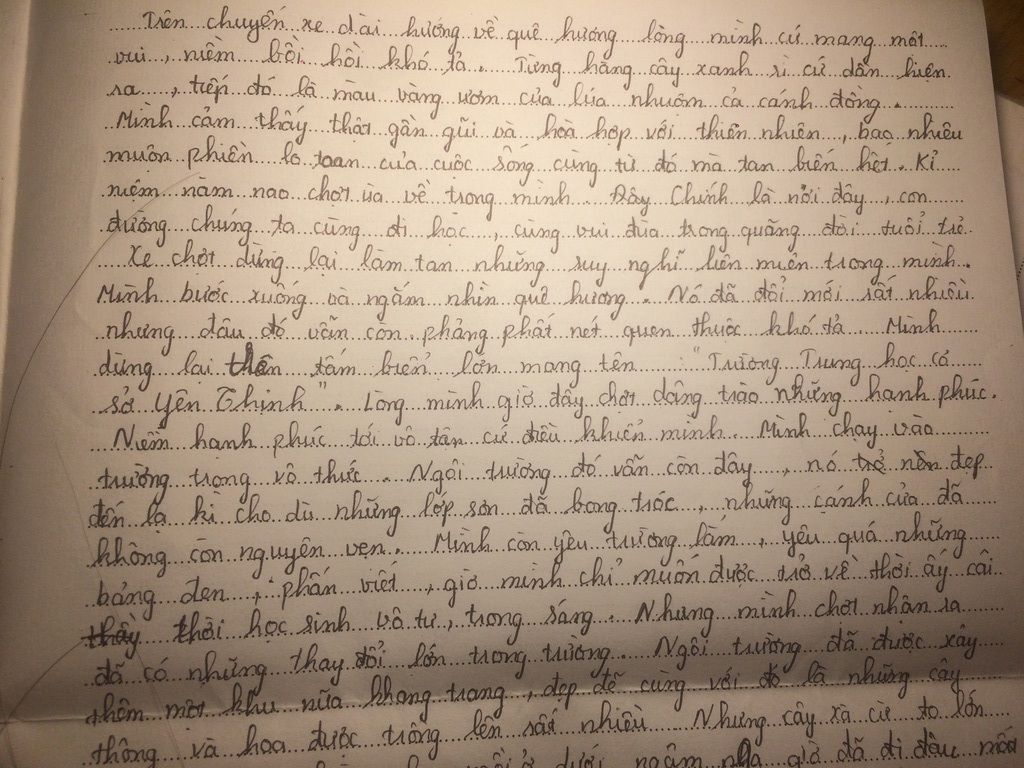 Trên chuyến xe dài hướng về quê hương lòng mình cứ mang một
vui, niềm bồi hồi khó tả. Từng hàng cây xanh rì cứ dần hiện
ra, tiếp đó là màu vàng ươm của lúa nhuộm cả cánh đồng.
Mình cảm thấy thật gần gũi và hoà hợp với thiên nhiên, bao nhiêu
muộn phiền lo toan của cuộc sống cũng từ đó mà tan biến hết. Kỉ
niệm năm nao chợt ùa về trong mình. Đây Chính là nơi đây, con
đường chúng ta cùng đi học, cùng vui đùa trong quãng đời tuổi trẻ.
Xe chợt dừng lại làm tan những suy nghĩ liên miên trong mình.
Mình bước xuống và ngắm nhìn quê hương. Nó đã đổi mới rất nhiều
nhưng đâu đó vẫn còn phảng phất nét quen thuộc khó tả. Mình
dừng lại trên tấm biển lớn mang tên: "Trường Trung học cơ
sở Yên Thịnh". Lòng mình giờ đây chợt dâng trào những hạnh phúc.
Niềm hạnh phúc tới vô tận cứ điều khiển mình. Mình chạy vào
trường trong vô thức. Ngôi trường đó vẫn còn đây, nó trở nên đẹp
đến lạ kì cho dù những lớp sơn đã bong tróc, những cánh cửa đã
không còn nguyên vẹn. Mình còn yêu trường lắm, yêu quá những
bảng đen, phấn viết, giờ mình chỉ muốn được trở về thời ấy cái
thời học sinh vô tư, trong sáng. Nhưng mình chợt nhận ra
đã có những thay đổi lớn trong trường. Ngôi trường đã được xây
thêm một khu nữa khang trang, đẹp đẽ cùng với đó là những cây
thông và hoa được trồng lên rất nhiều. Nhưng cây xà cừ to lớn
ngồi ở dưới ngắm giờ đã đi đâu mất